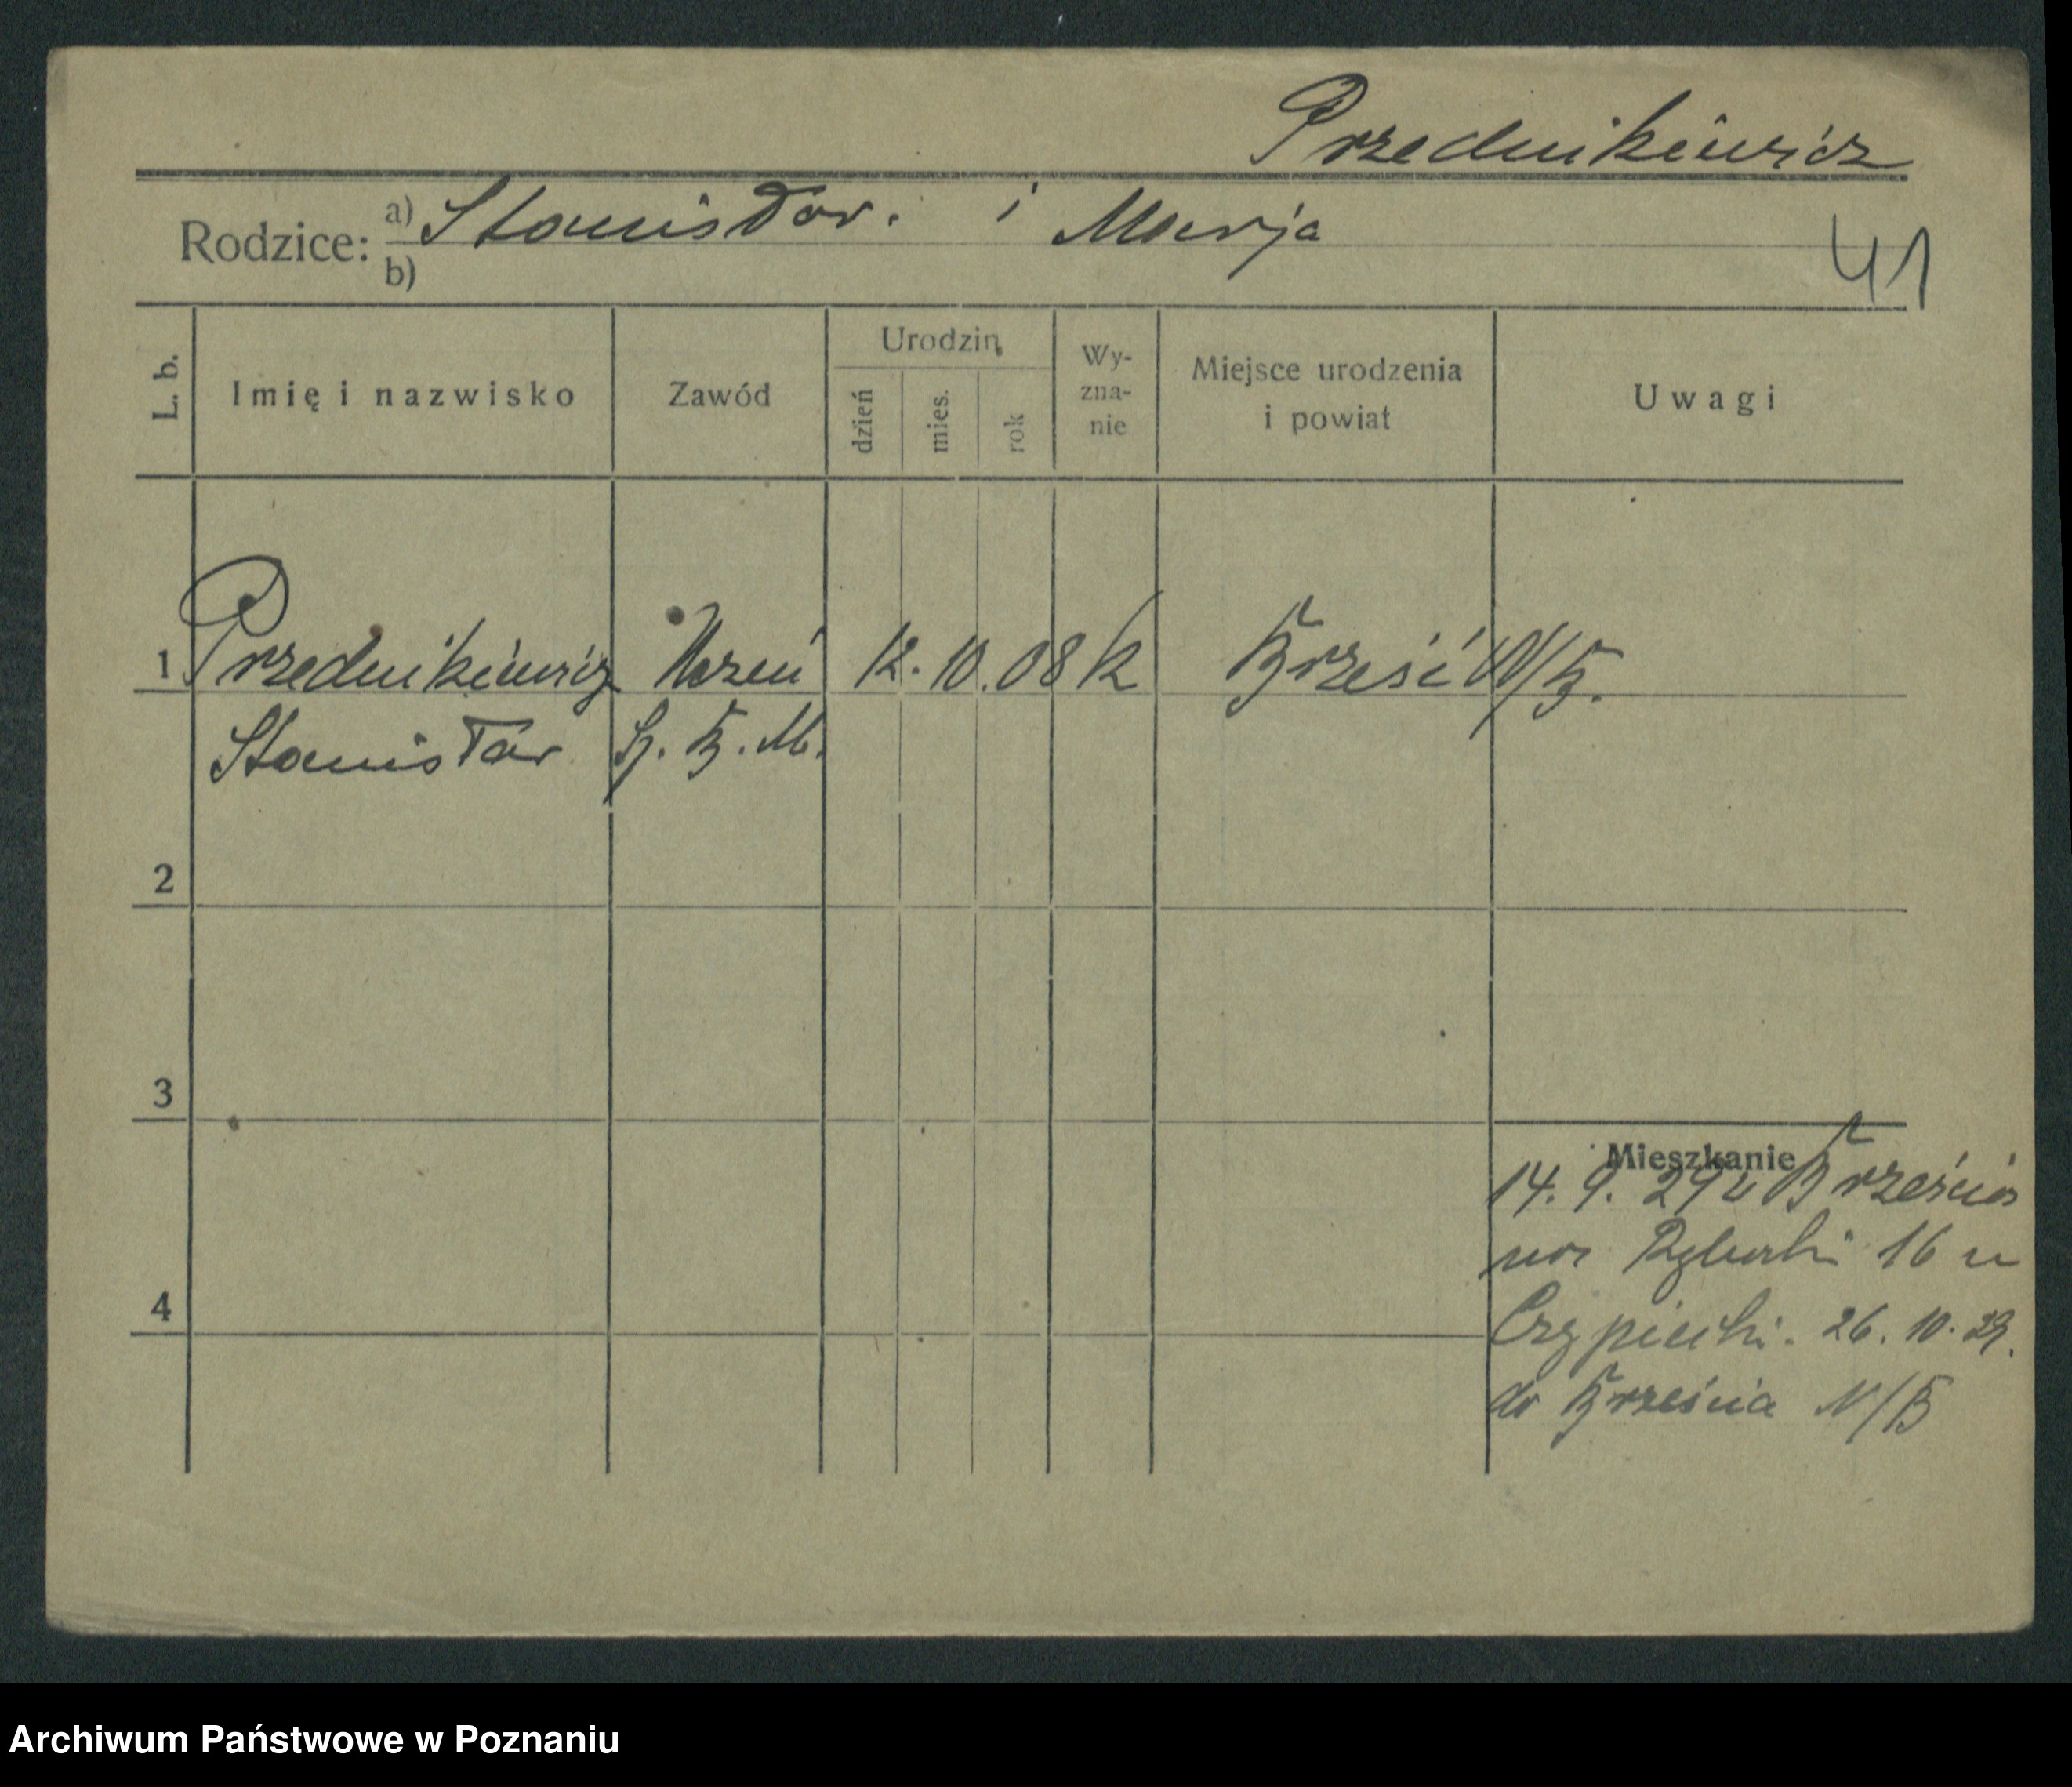 Przednikiewicz
Rodzice: a) Stanisław. i Marja
b)
41
L. b.
Imię i nazwisko
Zawód
Urodzin
dzień
mies.
rok
Wy-
zna-
nie
Miejsce urodzenia
i powiat
Uwagi
1 Przednikiewicz Uczeń 12. 10. 08 k Brześć N/B.
Stanisław S. B. M.
2
3
Mieszkanie
14. 9. 29 z Brześcia
na Rybaki 16 u
4
26. 10. 29.
do Brześcia N/B
Archiwum Państwowe w Poznaniu